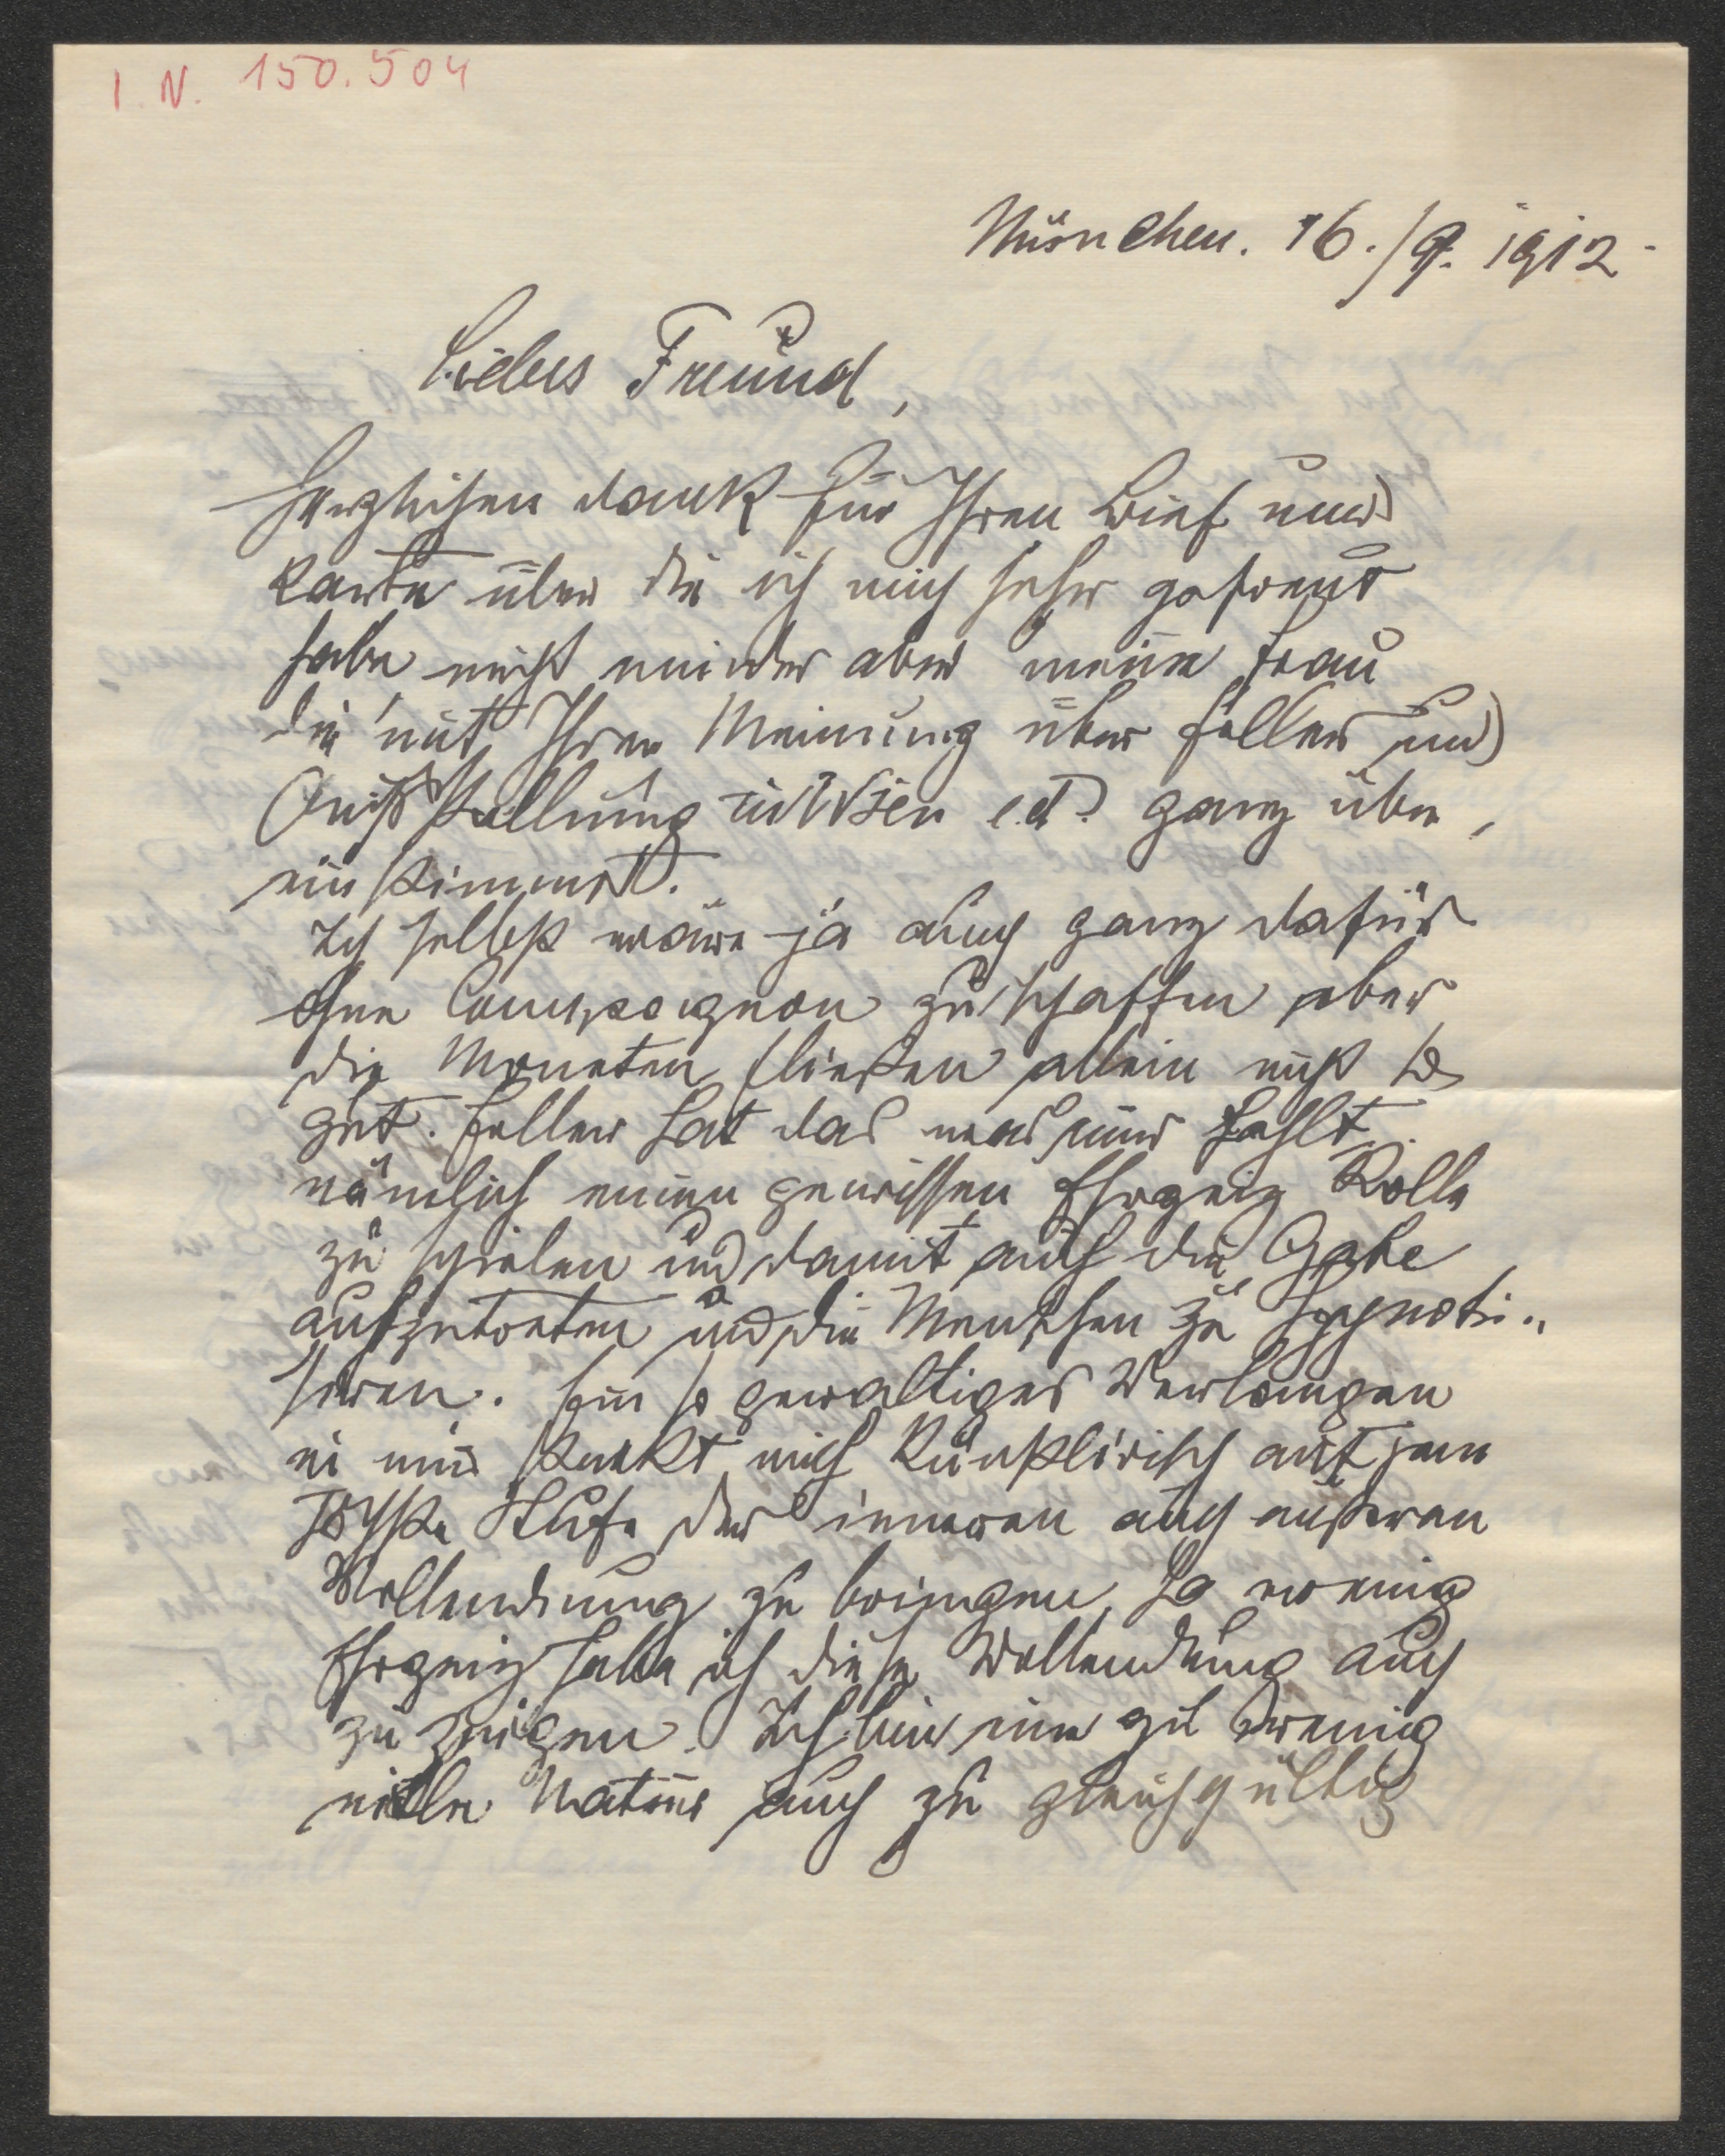 I. N. 150.504
München. 16./9. 1912.
Lieber Freund,
Herzlichen dank für Ihren Brief und
Karte über die ich mich sehr gefreut
habe nicht minder aber meine Frau
die mit Ihrer Meinung über Feller und
Ausstellung in Wien e.ct. ganz über,
ein stimmt.
Ich selbst wäre ja auch ganz dafür
ohne Compagnon zu schaffen aber
die Moneten fließen allein nicht so
gut. Feller hat das was mir fehlt,
nämlich einen gewissen Ehrgeiz Rolle
zu spielen und damit auch die Gabe
aufzutreten und die Menschen zu hypnoti„
sieren. Ein so gewaltiges Verlangen
in mir steckt mich künstlerisch auf jene
höchste Stufe der inneren auch äußeren
Vollendung zu bringen, so wenig
Ehrgeiz habe ich diese Vollendung auch
zu zeigen. Ich bin eine zu wenig
eitle Natur auch zu gleichgültig